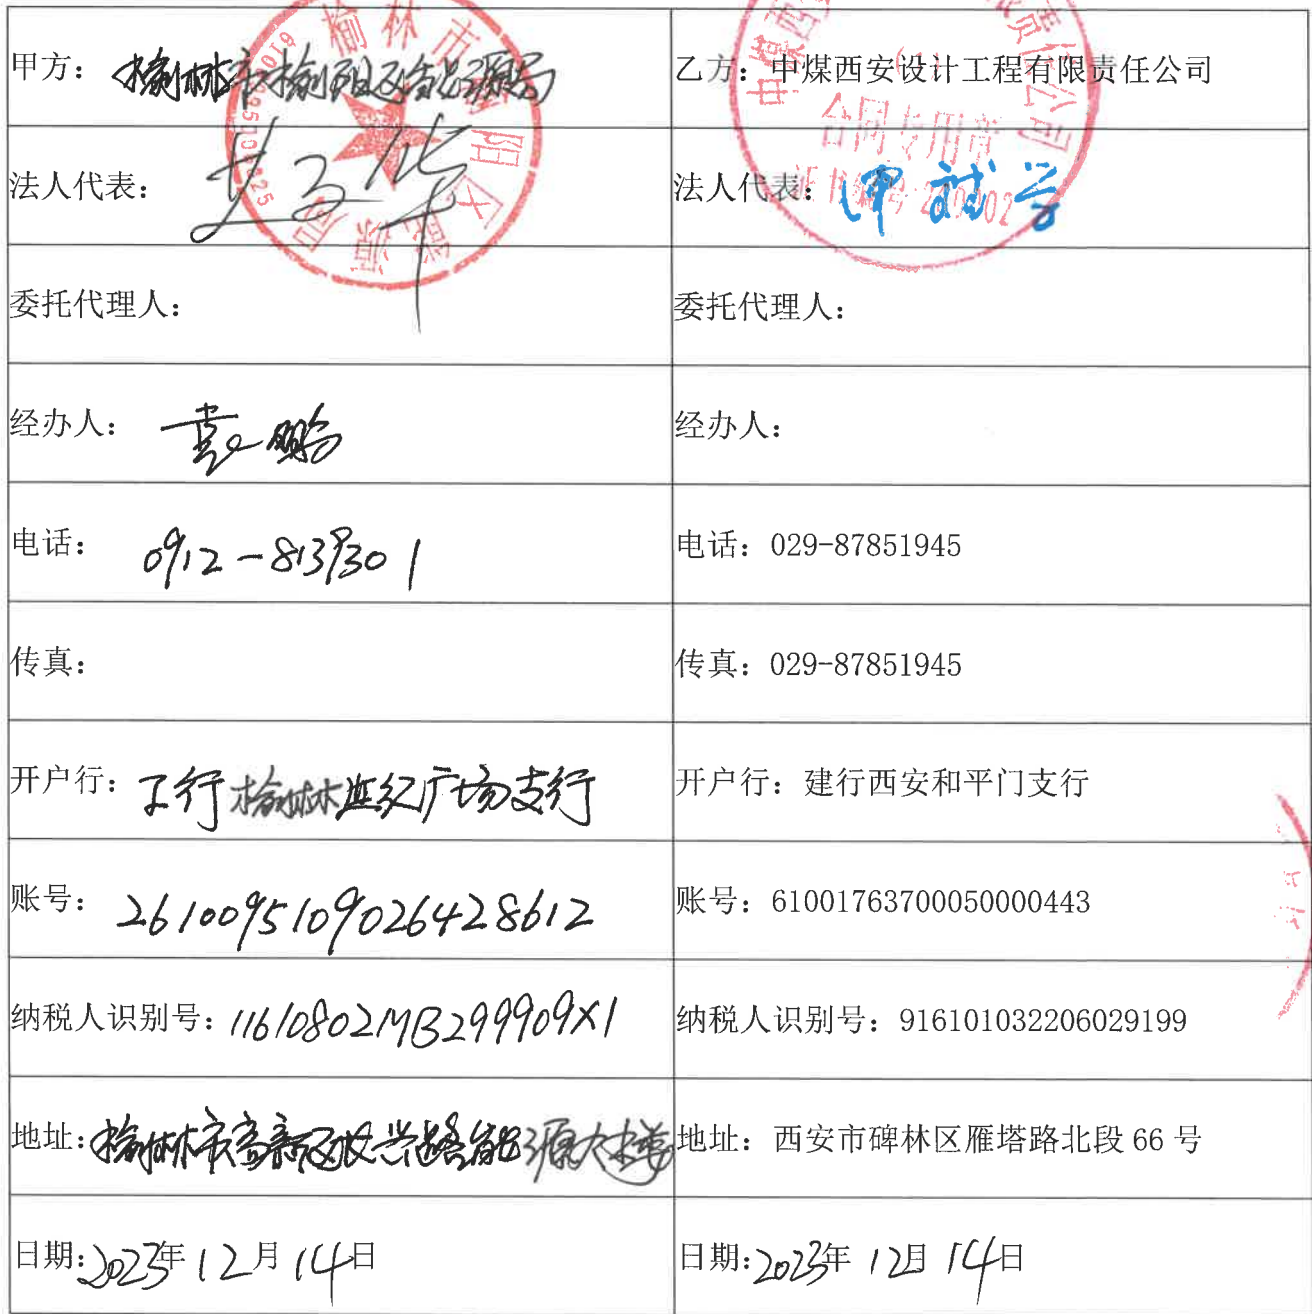 甲方：榆林市榆阳区能源局
乙方：中煤西安设计工程有限责任公司
榆林市榆阳区能源局
合同专用章
法人代表：
法人代表：
委托代理人：
委托代理人：
经办人：袁鹏
经办人：
电话：0912-8139301
电话：029-87851945
传真：
传真：029-87851945
开户行：工行榆林世纪广场支行
开户行：建行西安和平门支行
账号：2610095109026428612
账号：61001763700050000443
纳税人识别号：11610802MB299909X1
纳税人识别号：916101032206029199
地址：榆林市高新区长兴路能源大楼
地址：西安市碑林区雁塔路北段 66 号
日期：2023年12月14日
日期：2023年12月14日